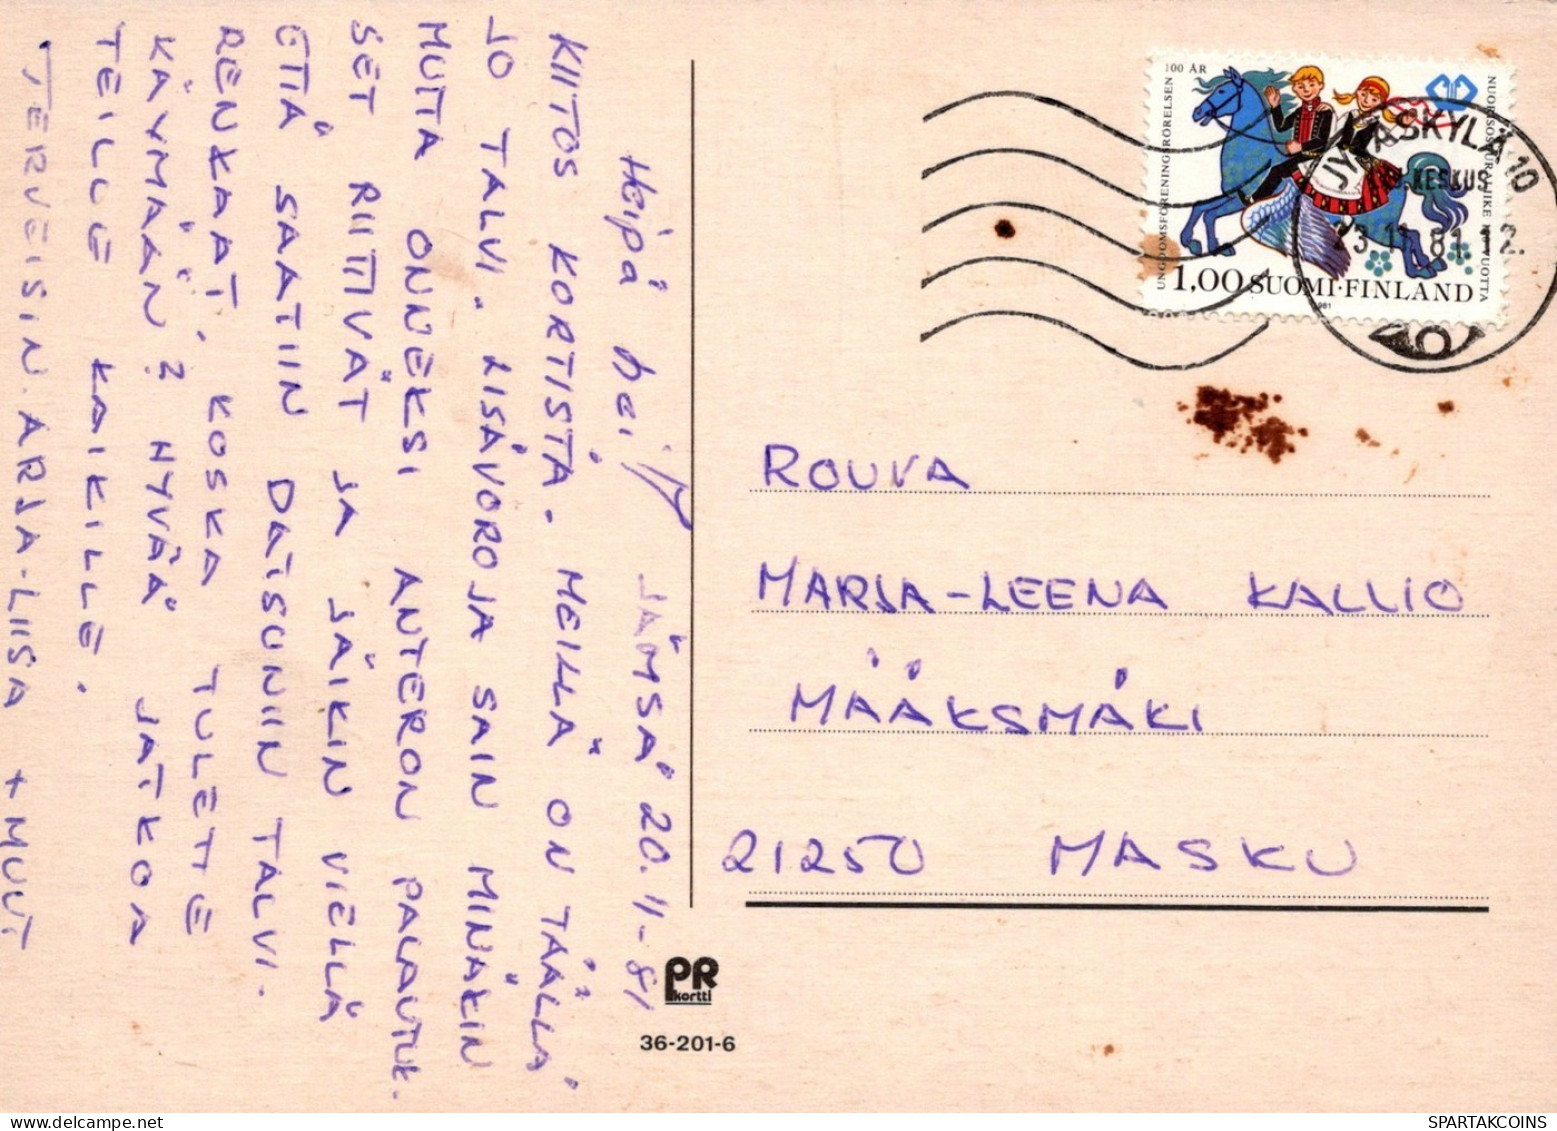 Heipä hei! JÄMSÄ 20.11-81
KIITOS KORTISTA. MEILLÄ ON TÄÄLLÄ
JO TALVI. LISÄVOROJA SAIN MINÄKIN
MUTTA ONNEKSI ANTERON PALAUTUK.
SET RIITTIVÄT JA JÄIKIN VIELLÄ
ETTÄ SAATIIN DATSUNIIN TALVI.
RENKAAT. KOSKA TULETTE
KÄYMÄÄN? HYVÄÄ JATKOA
TEILLE KAIKILLE.
TERVEISIN. ARJA-LIISA + MUUT
100 ÅR
UNGDOMSFÖRENINGSRÖRELSEN
NUORISOSEURALIIKE VUOTTA
1,00 SUOMI·FINLAND
1981
JYVÄSKYLÄ 10
KESKUS
23.11.81. 12.
ROUVA
MARJA-LEENA KALLIO
MÄÄKSMÄKI
21250 MASKU
PR
kortti
36-201-6
SPARTAKCOINS